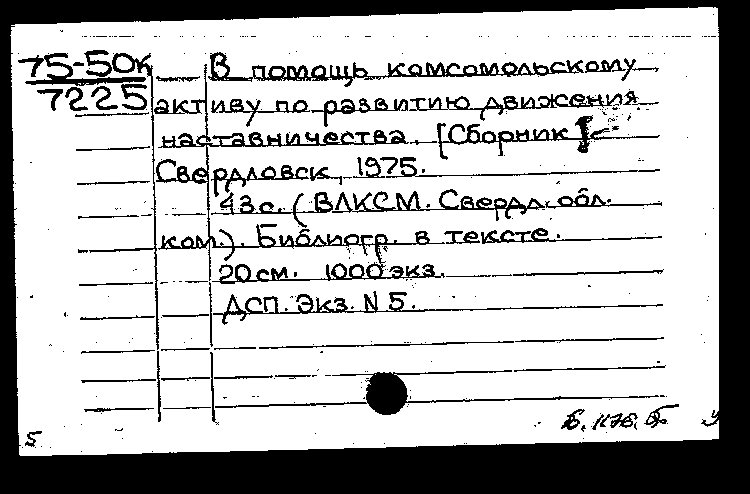 75-50к
7225
В помощь комсомольскому
активу по развитию движения
наставничества. [Сборник]
Свердловск, 1975.
43с. (ВЛКСМ. Свердл. обл.
ком.). Библиогр. в тексте.
20см. 1000 экз.
ДСП. Экз. N 5.
5